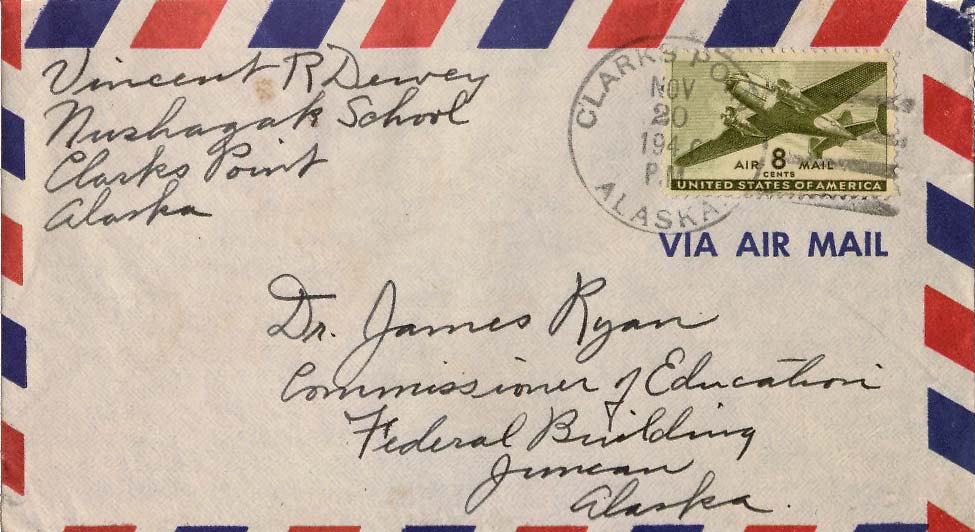 Vincent R Dewey
Nushagak School
Clarks Point
Alaska
CLARKS PO
NOV
20
194
P.M
ALASKA
AIR 8 MAIL
CENTS
UNITED STATES OF AMERICA
VIA AIR MAIL
Dr. James Ryan
Commissioner of Education
Federal Building
Juneau
Alaska.